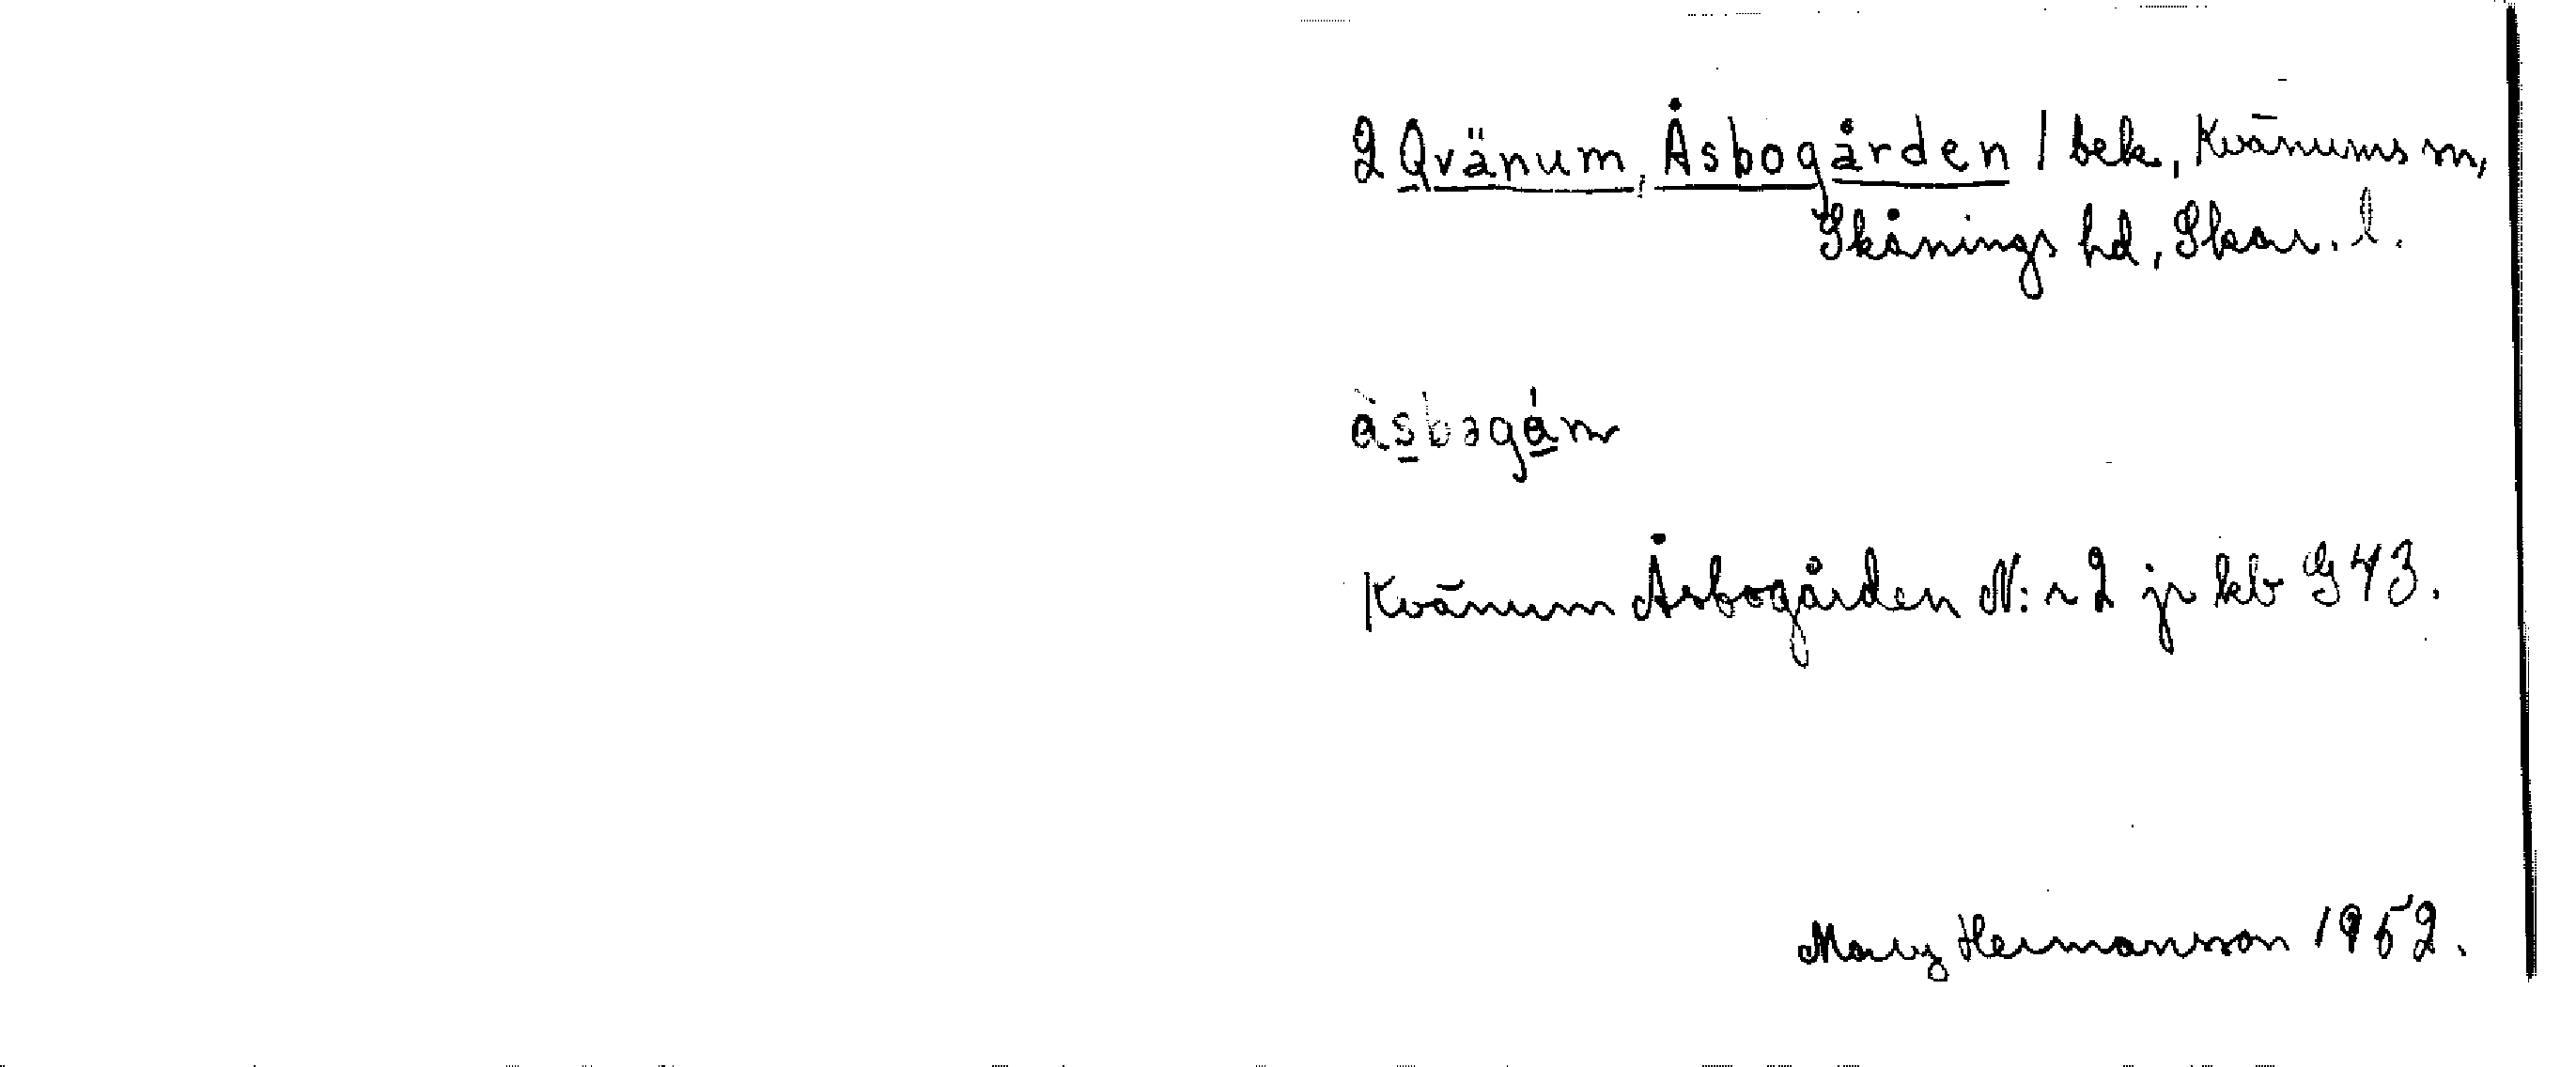 2 Qvänum, Åsbogården 1 bek, Kvänums sn,
Skånings hd, Skar. l.
Kvänum Åsbogården N:r 2 jr kb G 43.
Mary Hermansson 1952.